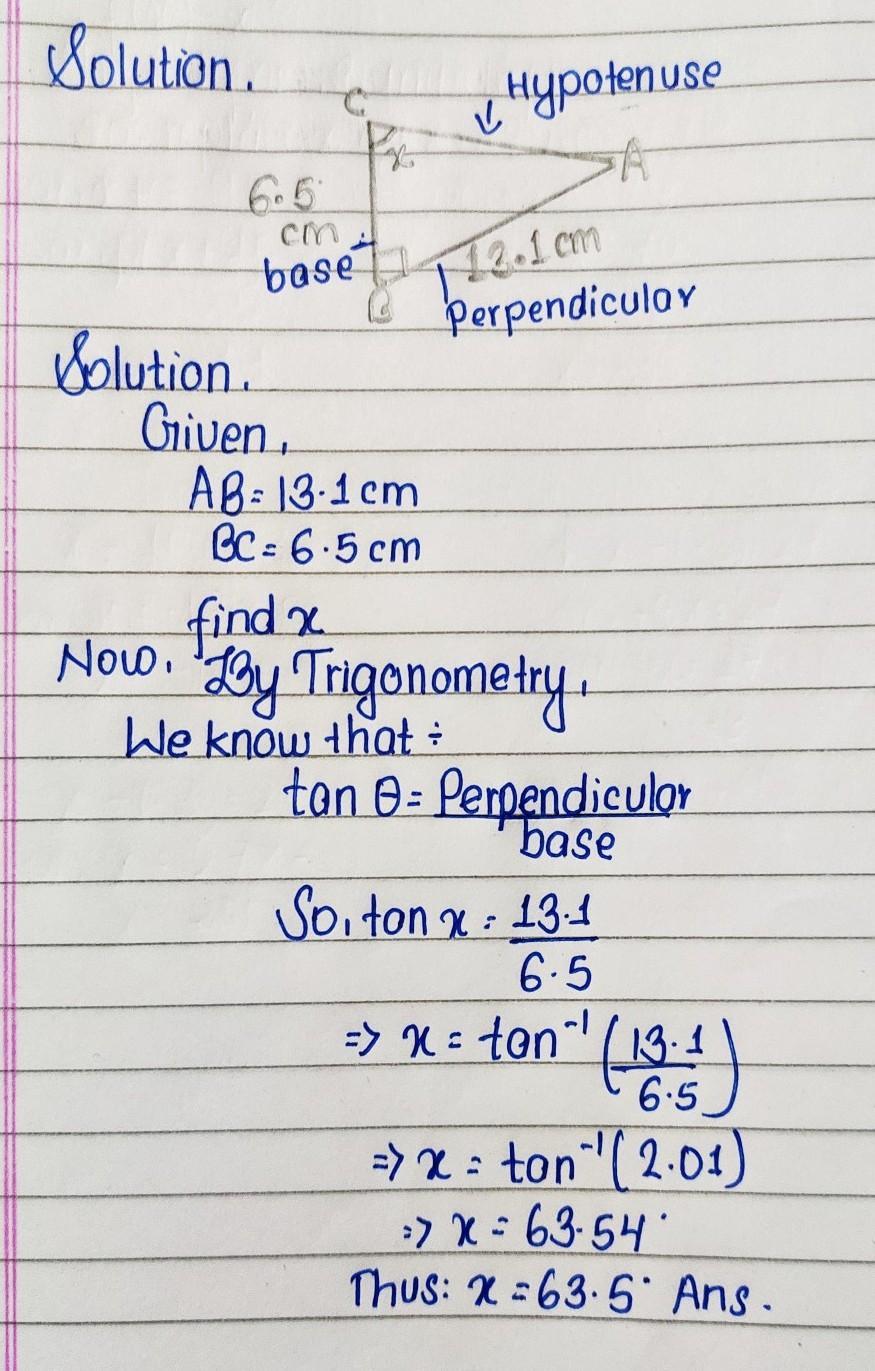 Solution.
Hypotenuse
C
x
A
6.5
cm
13.1 cm
base
B
Perpendicular
Solution.
Given,
AB = 13.1 cm
BC = 6.5 cm
find x
Now, By Trigonometry,
We know that ÷
tan θ = Perpendicular
base
So, tan x = 13.1
6.5
=> x = tan⁻¹ (13.1
6.5)
=> x = tan⁻¹ (2.01)
=> x = 63.54°
Thus: x = 63.5° Ans.